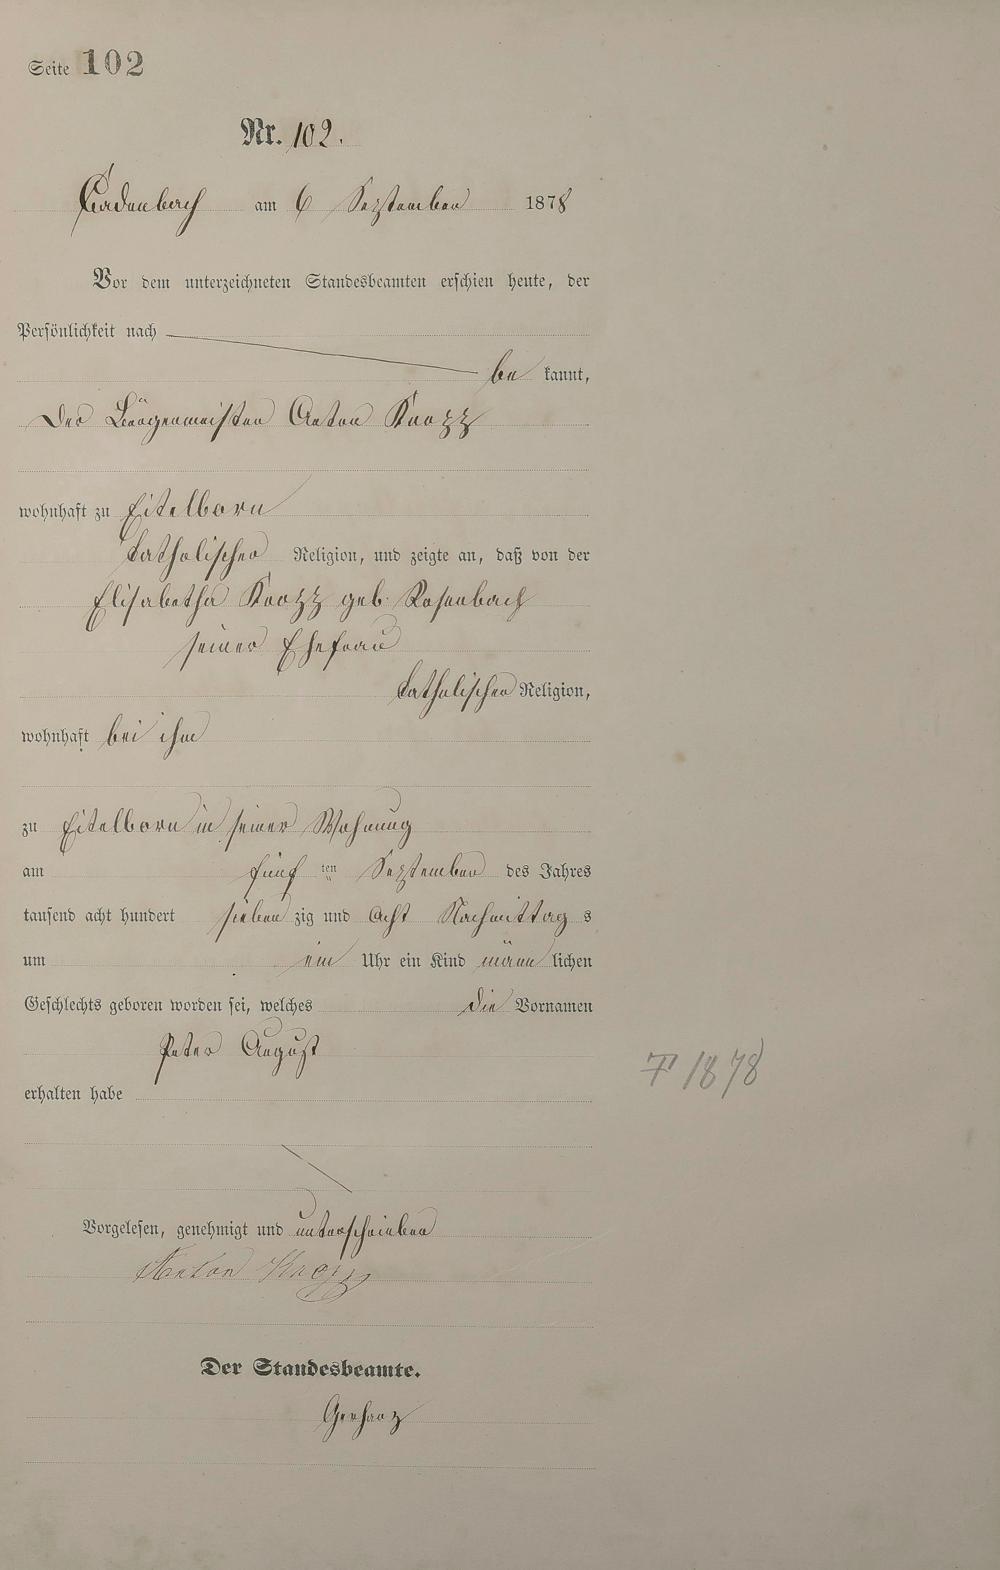 Seite 102
Nr. 102.
Cadenbach am 6 September 1878
Vor dem unterzeichneten Standesbeamten erschien heute, der
Persönlichkeit nach
be kannt,
Der Bürgermeister Anton Knopp
wohnhaft zu Eitelborn
katholischer Religion, und zeigte an, daß von der
Elisabetha Knopp geb. Rosenbach
seiner Ehefrau
katholischer Religion,
wohnhaft bei ihm
zu Eitelborn in seiner Wohnung
am fünf ten September des Jahres
tausend acht hundert sieben zig und acht Nachmittag s
um ein Uhr ein Kind männ lichen
Geschlechts geboren worden sei, welches die Vornamen
Peter August
erhalten habe
Vorgelesen, genehmigt und unterschrieben
Anton Knopp
Der Standesbeamte.
Gerharz
† 1878